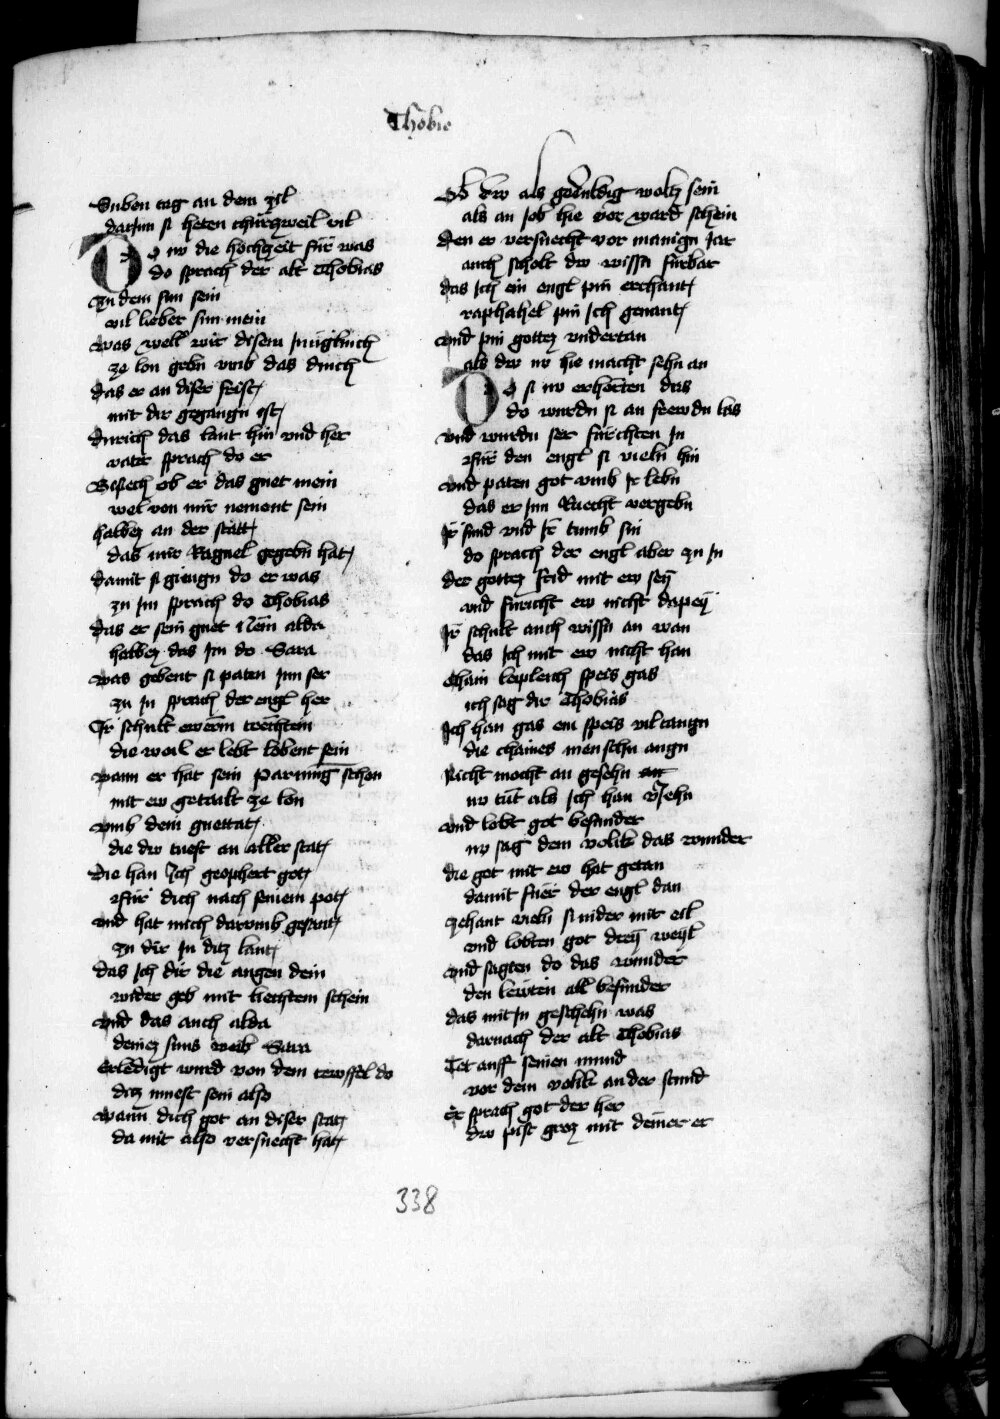 Thobie
Suben tag an dem zil
darinn si heten churczweil vil
Do nw die hochzeit für was
do sprach der alt Thobias
zu dem sun sein
vil lieber sun mein
was well wir disem Junglinch
ze lon gebn vmb das dinch
das er an diser frist
mit dir gegangn ist
durich das lant hin vnd her
vater sprach do er
Besech ob er das guet mein
wel von mir nement sein
halbez an der statt
das mir Raguel gegebn hat
damit si giengn do er was
zu Im sprach do Thobias
das er sein guet nem alda
halbez das Im do Sara
was gebent si paten Inn ser
zu In sprach der engl her
Ir schult ewerm trechtein
die weil er lebt lobent sein
wann er hat sein parmung schon
mit ew getailt ze lon
vmb dein guettat
die dw tuest an aller stat
die han Ich geophert got
für dich nach seinem pot
vnd hat mich darumb gesant
zu dir In ditz lant
das Ich dir die augen dein
wider geb mit liechtem schein
vnd das auch alda
deinez suns weib Sara
erledigt wurd von dem tewffel do
ditz muest sein also
wann dich got an diser stat
da mit also versuecht hat
Ob dw als geduldig woltz sein
als an Job hie vor ward schein
den er versuecht vor manign Jar
auch scholt dw wissn fürbar
das Ich ein engl pin erchant
raphahel pin Ich genant
vnd pin gottez vndertan
als dw nw hie macht sehn an
Do si nw erhorten das
do wurdn si an frewdn las
vnd wurdn ser fürchten In
für den engl si vieln hin
vnd paten got vmb Ir lebn
das er Inn Ruecht vergebn
Ir sund vnd Ir tumb sin
do sprach der engl aber zu In
der gottez frid mit ew sey
vnd füricht ew nicht dapey
Ir schult auch wissn an wan
das Ich mit ew nicht han
Chain leipleich speis gas
ich sag dir Thobias
Ich han gas ein speis vil taugn
die chaines menschn augn
Nicht mocht an gesehn
nw tut als Ich han veriehn
vnd lobt got besunder
nw sag dem volik das wunder
die got mit ew hat getan
damit fuer der engl dan
zehant vieln si nider mit eil
vnd lobten got drey weyl
vnd sagten do das wunder
den lewten all besunder
das mit In geschehn was
darnach der alt Thobias
Tet auff seinen mund
vor dem volik an der stund
Er sprach got der her
dw pist groz mit deiner er
338